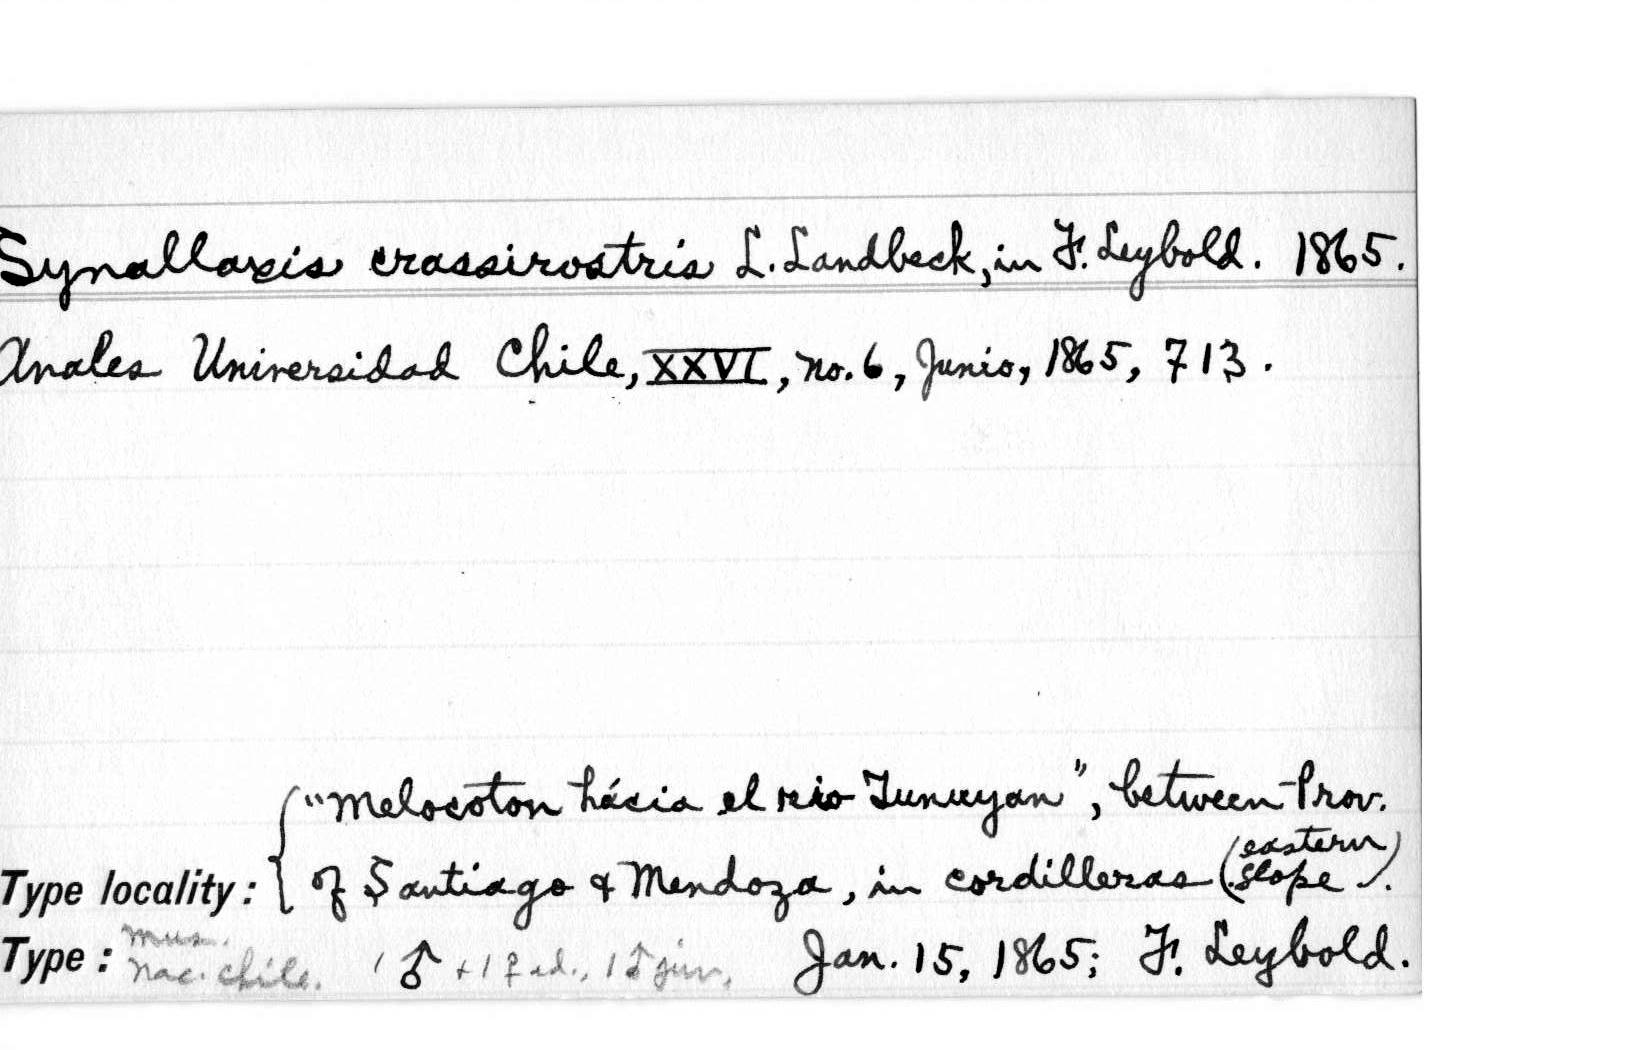 Synallaxis crassirostris L. Landbeck, in F. Leybold. 1865.
Anales Universidad Chile, XXVI, no. 6, Junio, 1865, 713.
"Melocoton hácia el rio Tunuyan", between Prov.
Type locality: { of Santiago & Mendoza, in cordilleras (eastern slope).
Type: Mus. Nac. Chile. 1 ♂ + 1 ♀ ad., 1 ♂ juv. Jan. 15, 1865; F. Leybold.